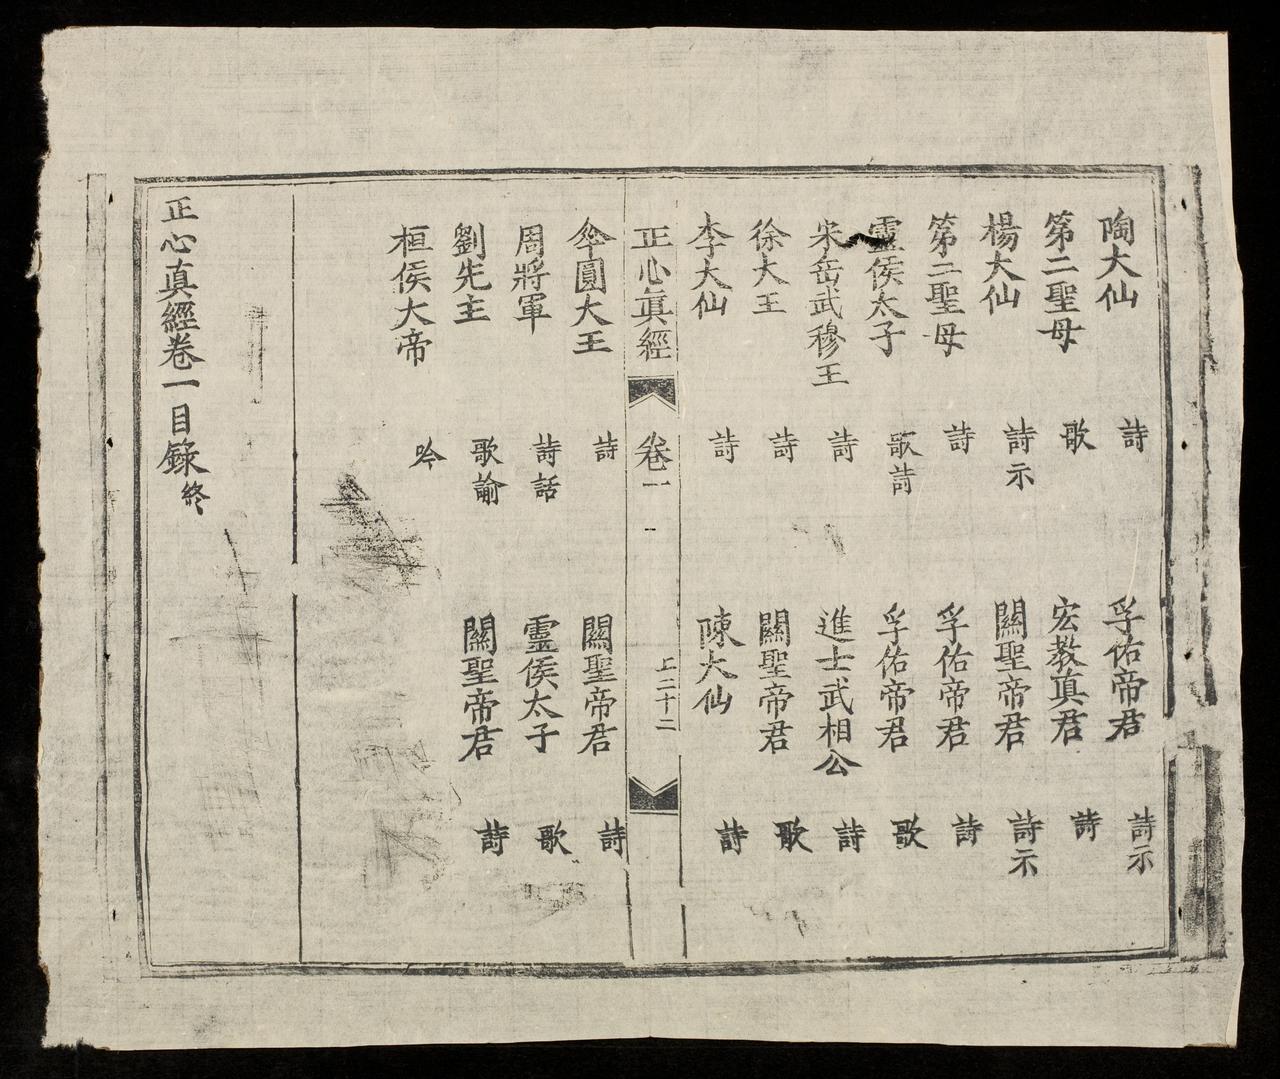 陶大仙 詩 孚佑帝君 詩示
第二聖母 歌 宏教真君 詩
楊大仙 詩示 關聖帝君 詩示
第二聖母 詩 孚佑帝君 詩
靈侯太子 歌詩 孚佑帝君 歌
宋岳武穆王 詩 進士武相公 詩
徐大王 詩 關聖帝君 歌
李大仙 詩 陳大仙 詩
正心真經 卷一 上二十二
傘圓大王 詩 關聖帝君 詩
周將軍 詩話 靈侯太子 歌
劉先主 歌諭 關聖帝君 詩
桓侯大帝 吟
正心真經卷一目錄終